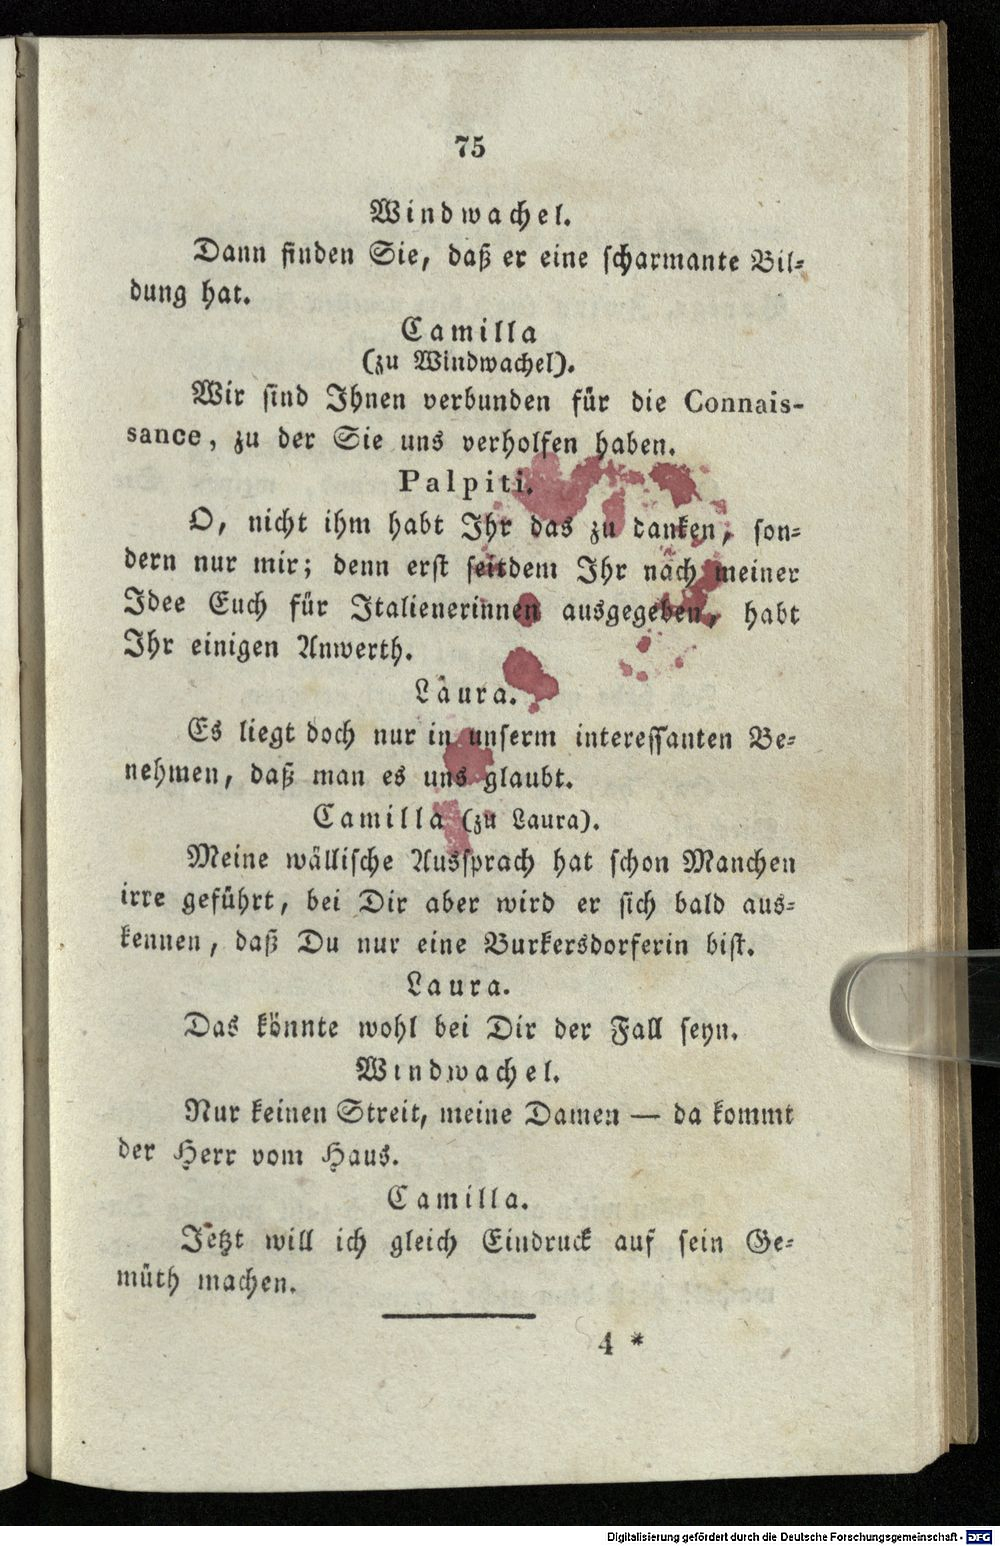 75
Windwachel.
Dann finden Sie, daß er eine scharmante Bil-
dung hat.
Camilla
(zu Windwachel).
Wir sind Ihnen verbunden für die Connais-
sance, zu der Sie uns verholfen haben.
Palpiti.
O, nicht ihm habt Ihr das zu danken, son-
dern nur mir; denn erst seitdem Ihr nach meiner
Idee Euch für Italienerinnen ausgegeben, habt
Ihr einigen Anwerth.
Laura.
Es liegt doch nur in unserm interessanten Be-
nehmen, daß man es uns glaubt.
Camilla (zu Laura).
Meine wällische Aussprach hat schon Manchen
irre geführt, bei Dir aber wird er sich bald aus-
kennen, daß Du nur eine Burkersdorferin bist.
Laura.
Das könnte wohl bei Dir der Fall seyn.
Windwachel.
Nur keinen Streit, meine Damen — da kommt
der Herr vom Haus.
Camilla.
Jetzt will ich gleich Eindruck auf sein Ge-
müth machen.
4 *
Digitalisierung gefördert durch die Deutsche Forschungsgemeinschaft - DFG